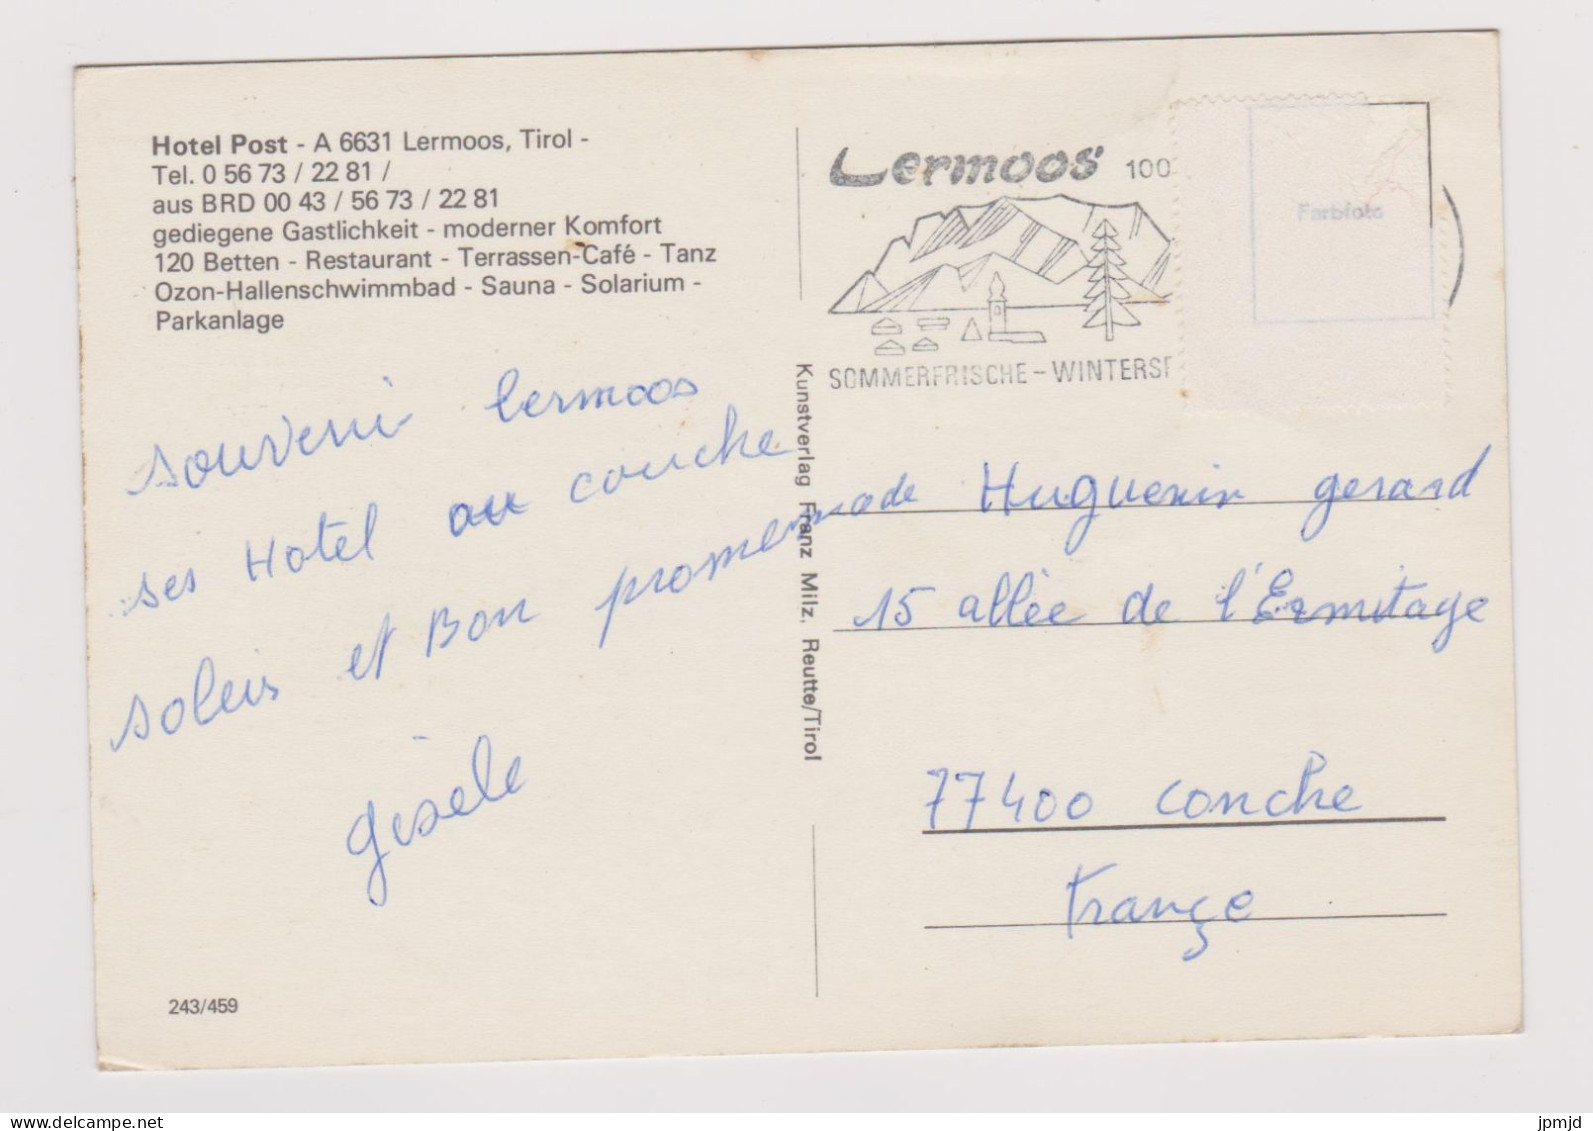 Hotel Post - A 6631 Lermoos, Tirol -
Tel. 0 56 73 / 22 81 /
aus BRD 00 43 / 56 73 / 22 81
gediegene Gastlichkeit - moderner Komfort
120 Betten - Restaurant - Terrassen-Café - Tanz
Ozon-Hallenschwimmbad - Sauna - Solarium -
Parkanlage
souvenir lermoos
ses Hotel au couche
soleis et Bon promenmade
gisèle
243/459
Kunstverlag Franz Milz, Reutte/Tirol
Lermoos 100
SOMMERFRISCHE - WINTERSP
Farbfoto
Huguenin gerard
15 allée de l'Ermitage
77400 conche
françe
delcampe.net
jpmjd